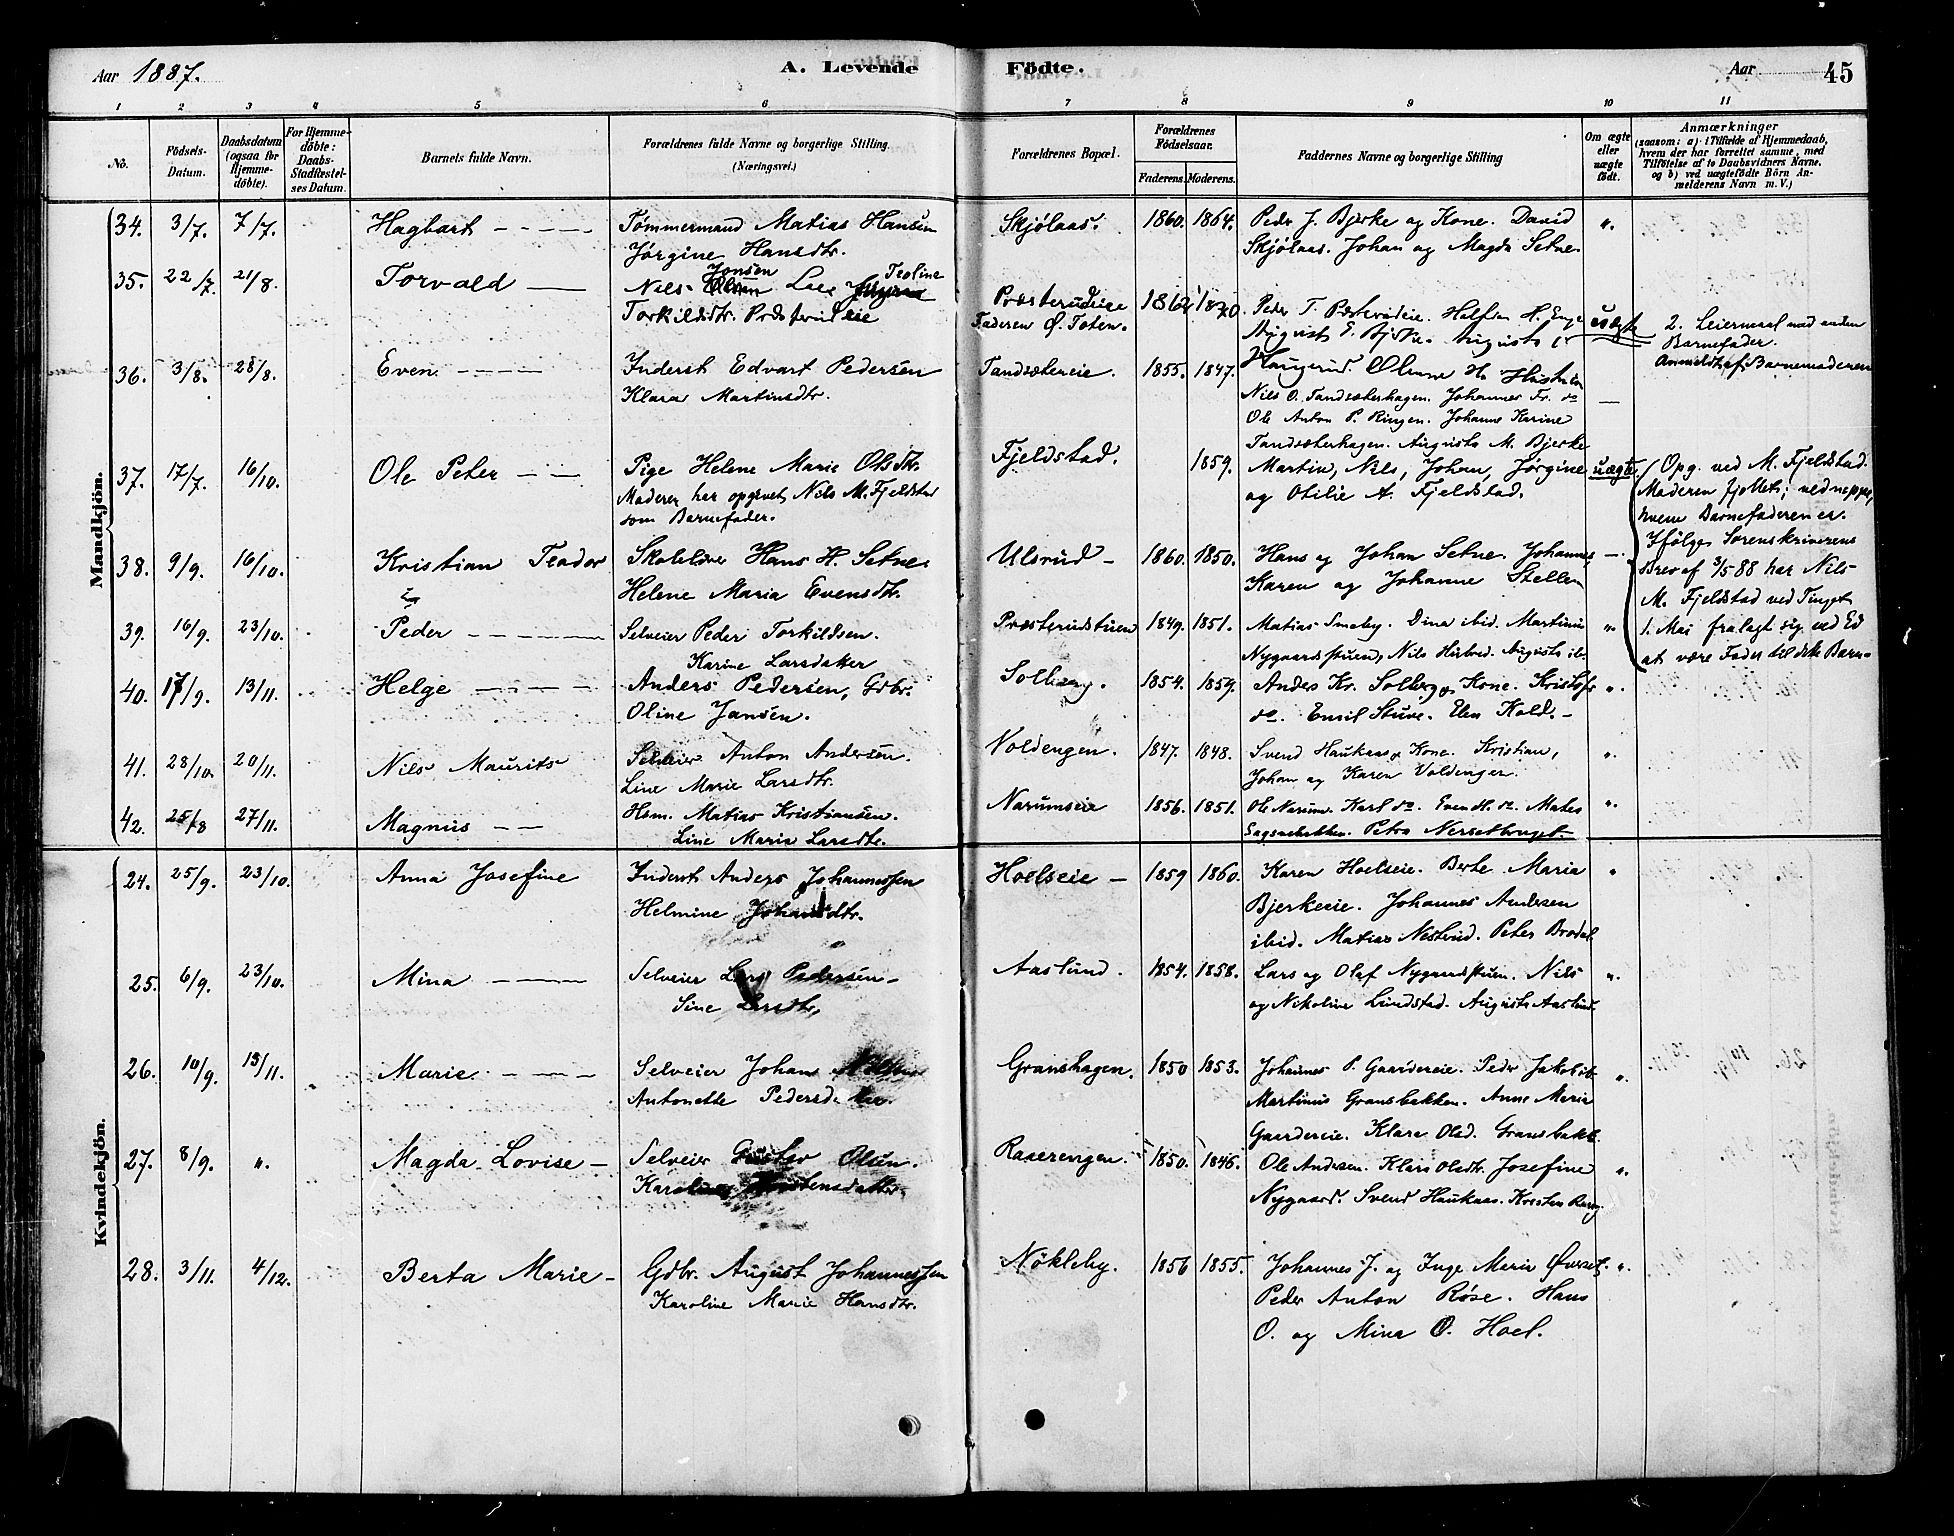 Aar 1887.
A. Levende
Födte.
Aar
45
1 2 3 4 5 6 7 8 9 10 11
No.
Födsels-Datum.
Daabsdatum (ogsaa for Hjemme-döbte).
For Hjemme-döbte: Daabs-Stadfæstelses Datum.
Barnets fulde Navn.
Forældrenes fulde Navne og borgerlige Stilling. (Næringsvei.)
Forældrenes Bopæl.
Forældrenes Födselsaar.
Faderens. Moderens.
Faddernes Navne og borgerlige Stilling
Om ægte eller uægte födt.
Anmærkninger
(saasom: a) i Tilfælde af Hjemmedaab, hvem der har forrettet samme, med Tilföielse af to Daabsvidners Navne, og b) ved uægtefödte Börn Anmelderens Navn m. V.)
Mandkjön.
34. 3/7. 7/7. Hagbart Tømmermand Matias Hansen Skjølaas. 1860. 1864. Peder J. Bjerke og Kone. David "
Jørgine Hansdtr. Skjølaas. Johan og Magda Setne.
35. 22/7. 21/8. Torvald Nils Jonsen Lee Teoline Præsterudeie 1862 Peder T. Præsterudeie. uægte 2. Leiermaal med anden
Torkildsdtr. Faderen Ø. Toten. August E. Bjerke. Barnefader.
36. 3/8. 28/8. Even Inderst Edvart Pedersen Tandsætereie. 1855. 1847. Anmeldt af Barnemoderen
Klara Martinsdtr. Nils O. Tandsæterhagen. Johannes Fr. do
Ole Anton P. Ringen. Johanne Karine
Tandsæterhagen. Augusta M. Bjerke
37. 17/7. 16/10. Ole Peter Pige Helene Marie Olsdtr. Fjeldstad. 1859. Martin, Nils, Johan, Jørgine uægte Opg. ved M. Fjeldstad.
Moderen har opgivet Nils M. Fjeldstad og Otilie A. Fjeldstad. Moderen fjollet; ved neppe,
som Barnefader. hvem Barnefaderen er.
38. 9/9. 16/10. Kristian Teodor Hans H. Setne Ulsrud 1860. 1850. Hans og Johan Setne. Johannes, Ifølge Sorenskriverens
Helene Maria Evensdtr. Karen og Johanne Brev af 3/5 88 har Nils
M. Fjeldstad ved Tinget
39. 16/9. 23/10. Peder Selveier Peder Torkildsen. Præsterudstuen 1849. 1851. Matias Smeby. Dina ibid. Martinus " 1. Mai fralagt sig ved Ed
Karine Larsdatter Nygaardstuen, Nils at være Fader til dette Barn
40. 17/9. 13/11. Helge Anders Pedersen, Gdbr. Solberg. 1854. 1859. Anders Kr. Solberg og Kone. "
Oline Jansen. do. Emil Stuve. Elen Kold.
41. 28/10. 20/11. Nils Maurits Selveier Anton Andersen. Voldengen. 1847. 1848. Svend Haukaas og Kone. Kristian, "
Line Marie Larsdtr. Johan og Karen Voldengen.
42. 25/8 27/11. Magnus Hsm. Matias Kristiansen. Narumseie 1856. 1851. Ole Narum. Karl do. Even H. do. Mates "
Line Marie Larsdtr. Petra
Kvindekjön.
24. 25/9. 23/10. Anna Josefine Inderst Anders Johannessen Hoelseie 1859 1860. Karen Hoelseie. Berte Maria "
Helmine Johansdtr. Bjerkeeie. Johannes Andersen
ibid. Matias Nesterud. Peter
25. 6/9. 23/10. Mina Selveier Lars Pedersen Aaslund. 1854. 1858. Lars og Olaf Nygaardstuen. Nils "
Sine Larsdtr. og Nikoline Lundstad. Augusta Aaslund.
26. 10/9. 13/11. Marie Selveier Johan Granshagen. 1850 1853. Johannes P. Gaardereie. Peder "
Antonette Martinus Gransbakken. Anne Marie
Gaardereie. Klara Olsd. Gransbakk.
27. 8/9. " Magda Lovise Selveier Gustav Olsen. 1850. 1846. Ole Andersen. Klara Olsdtr. Josefine "
Nygaard. Svend Haukaas.
28. 3/11. 4/12. Berta Marie Gdbr. August Johannessen Nökleby. 1856 1855. Johannes J. og Inge Marie "
Karoline Marie Hansdtr. Peder Anton Røse. Hans
O. og Mina O. Hoel.